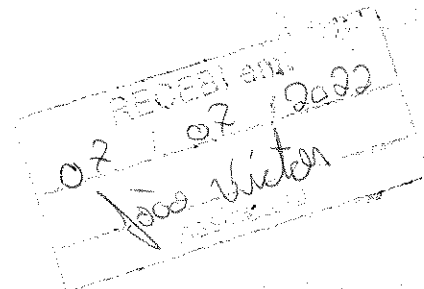 RECEBI em:
07 / 07 / 2022
João Victor